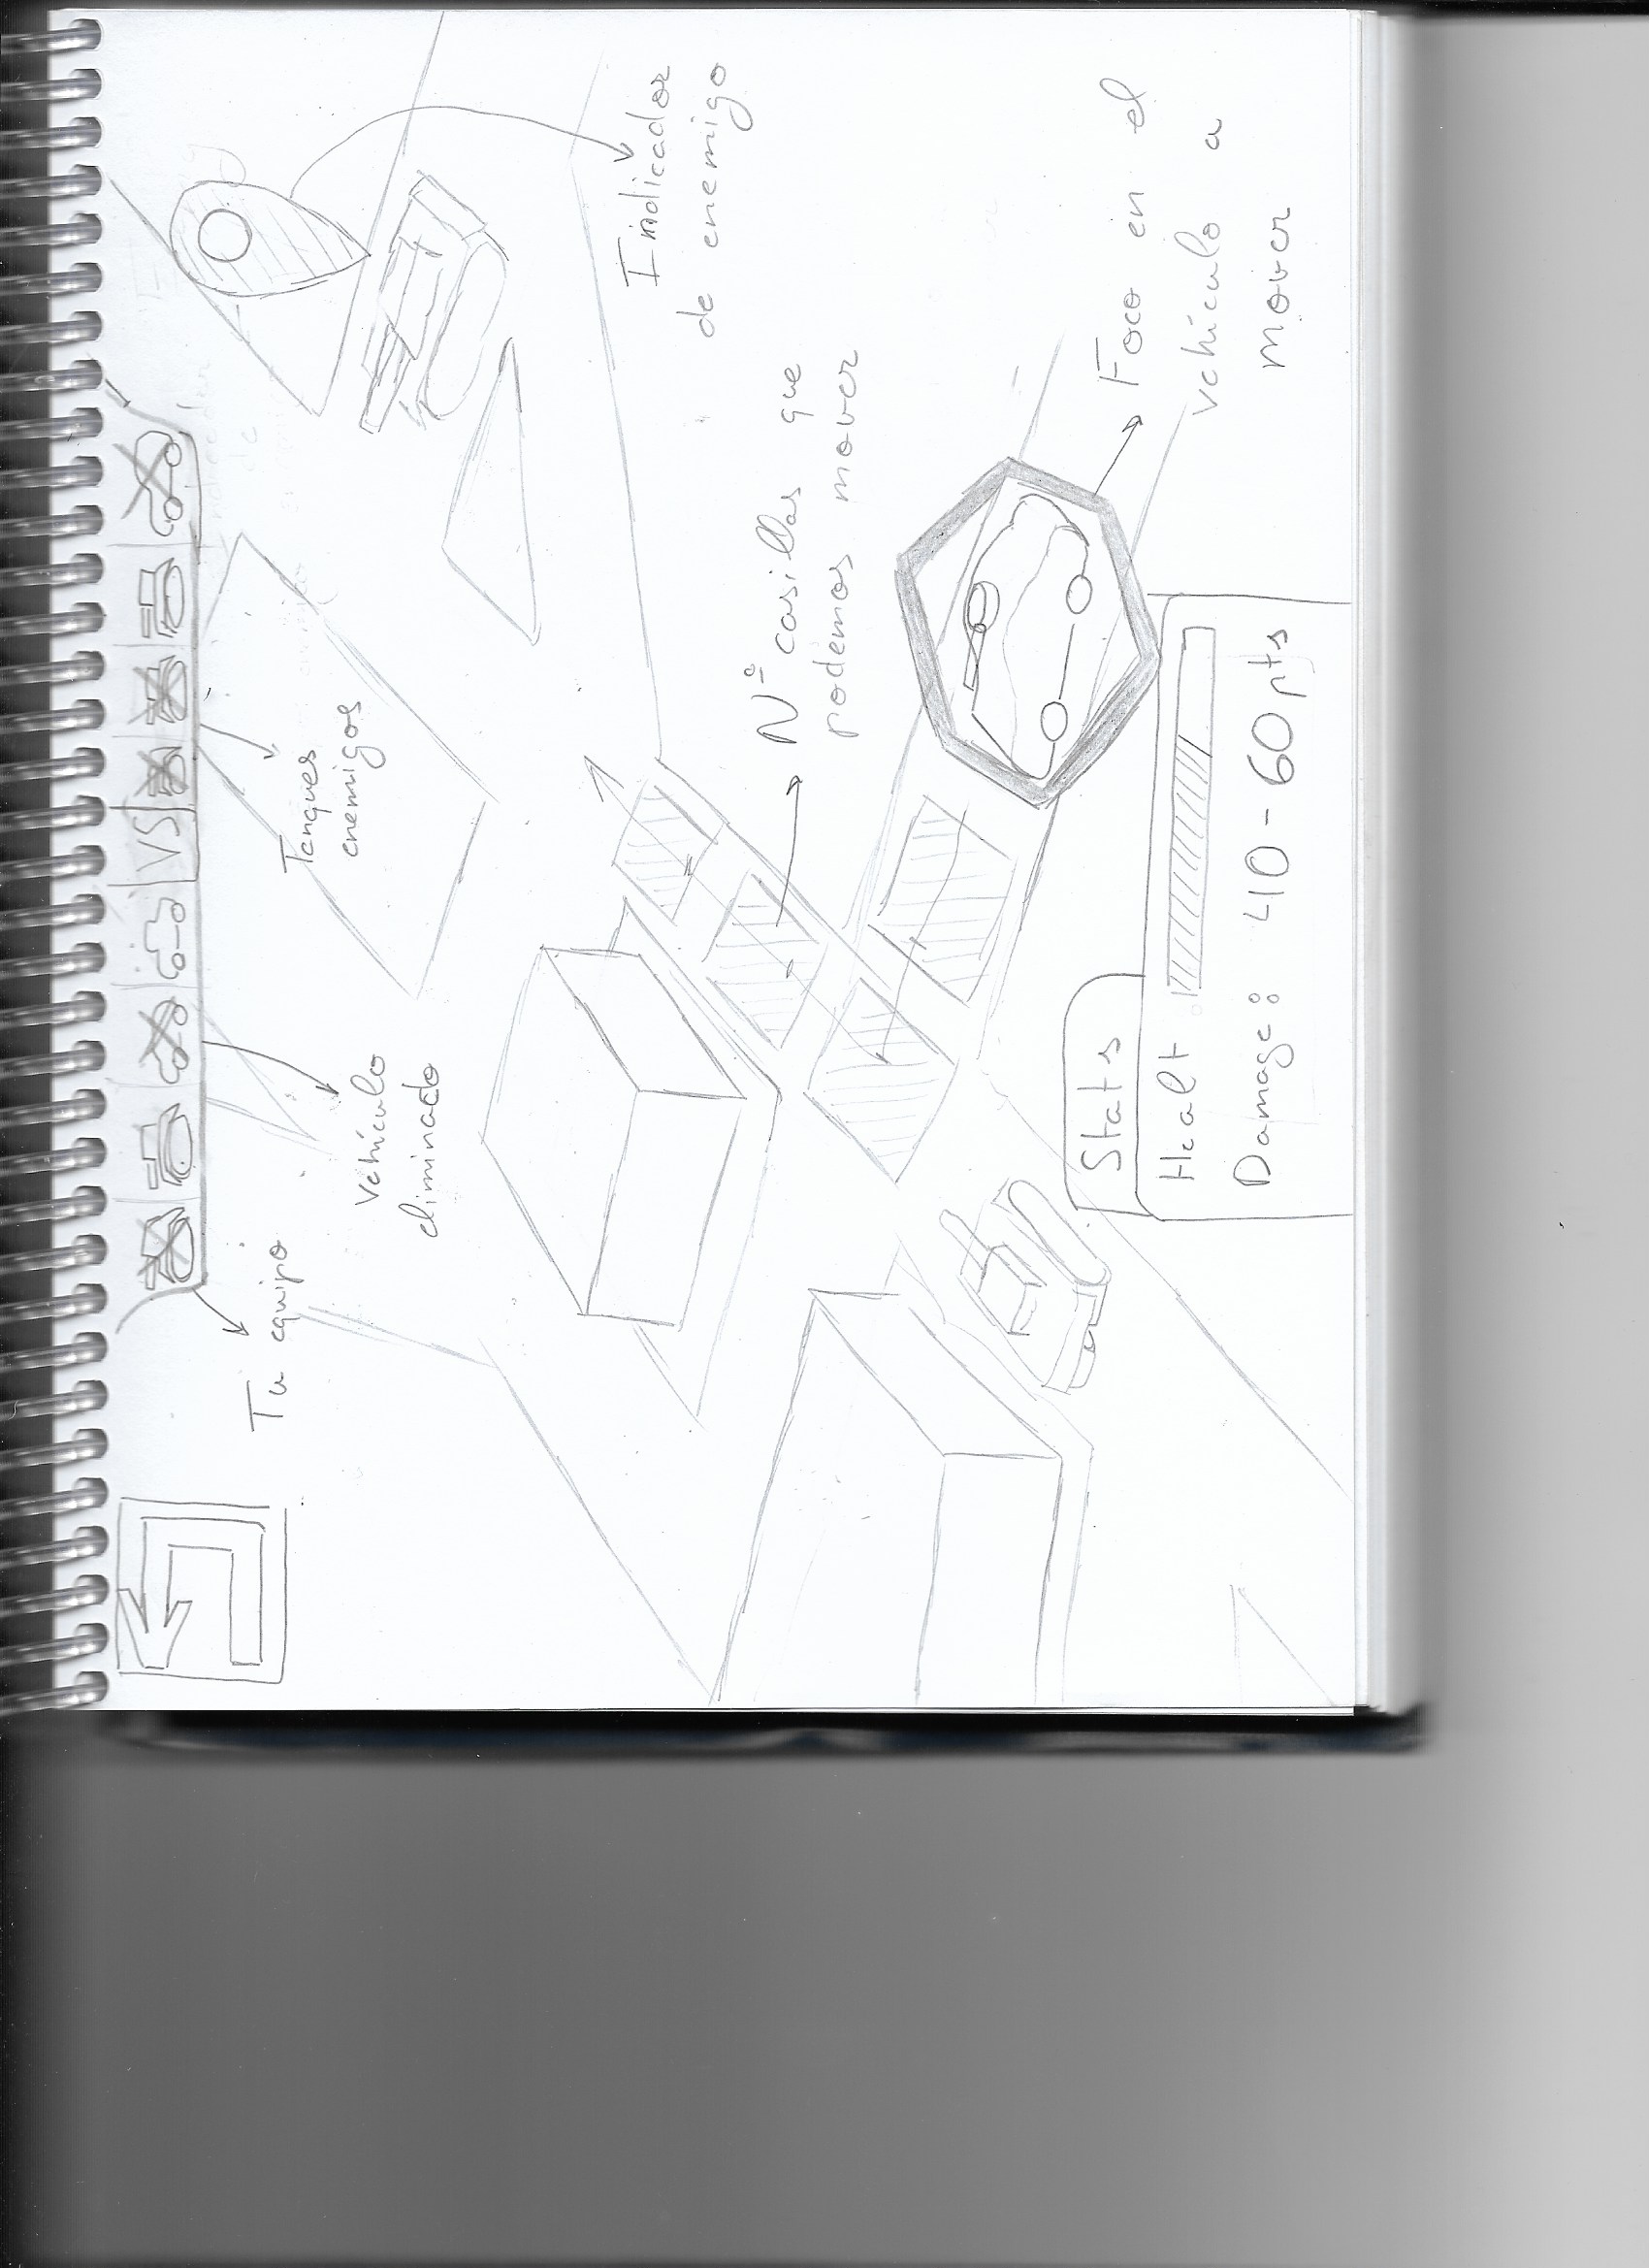 VS
Tu equipo
Vehículo
eliminado
Tanques
enemigos
Indicador
de enemigo
Nº casillas que
podemos mover
Foco en el
vehículo a
mover
Stats
Healt
Damage: 40-60pts